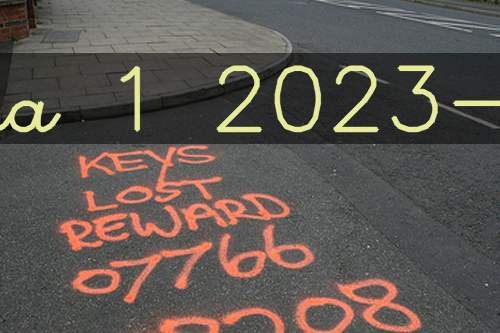 a 1 2023-
KEYS
LOST
REWARD
07766
8208